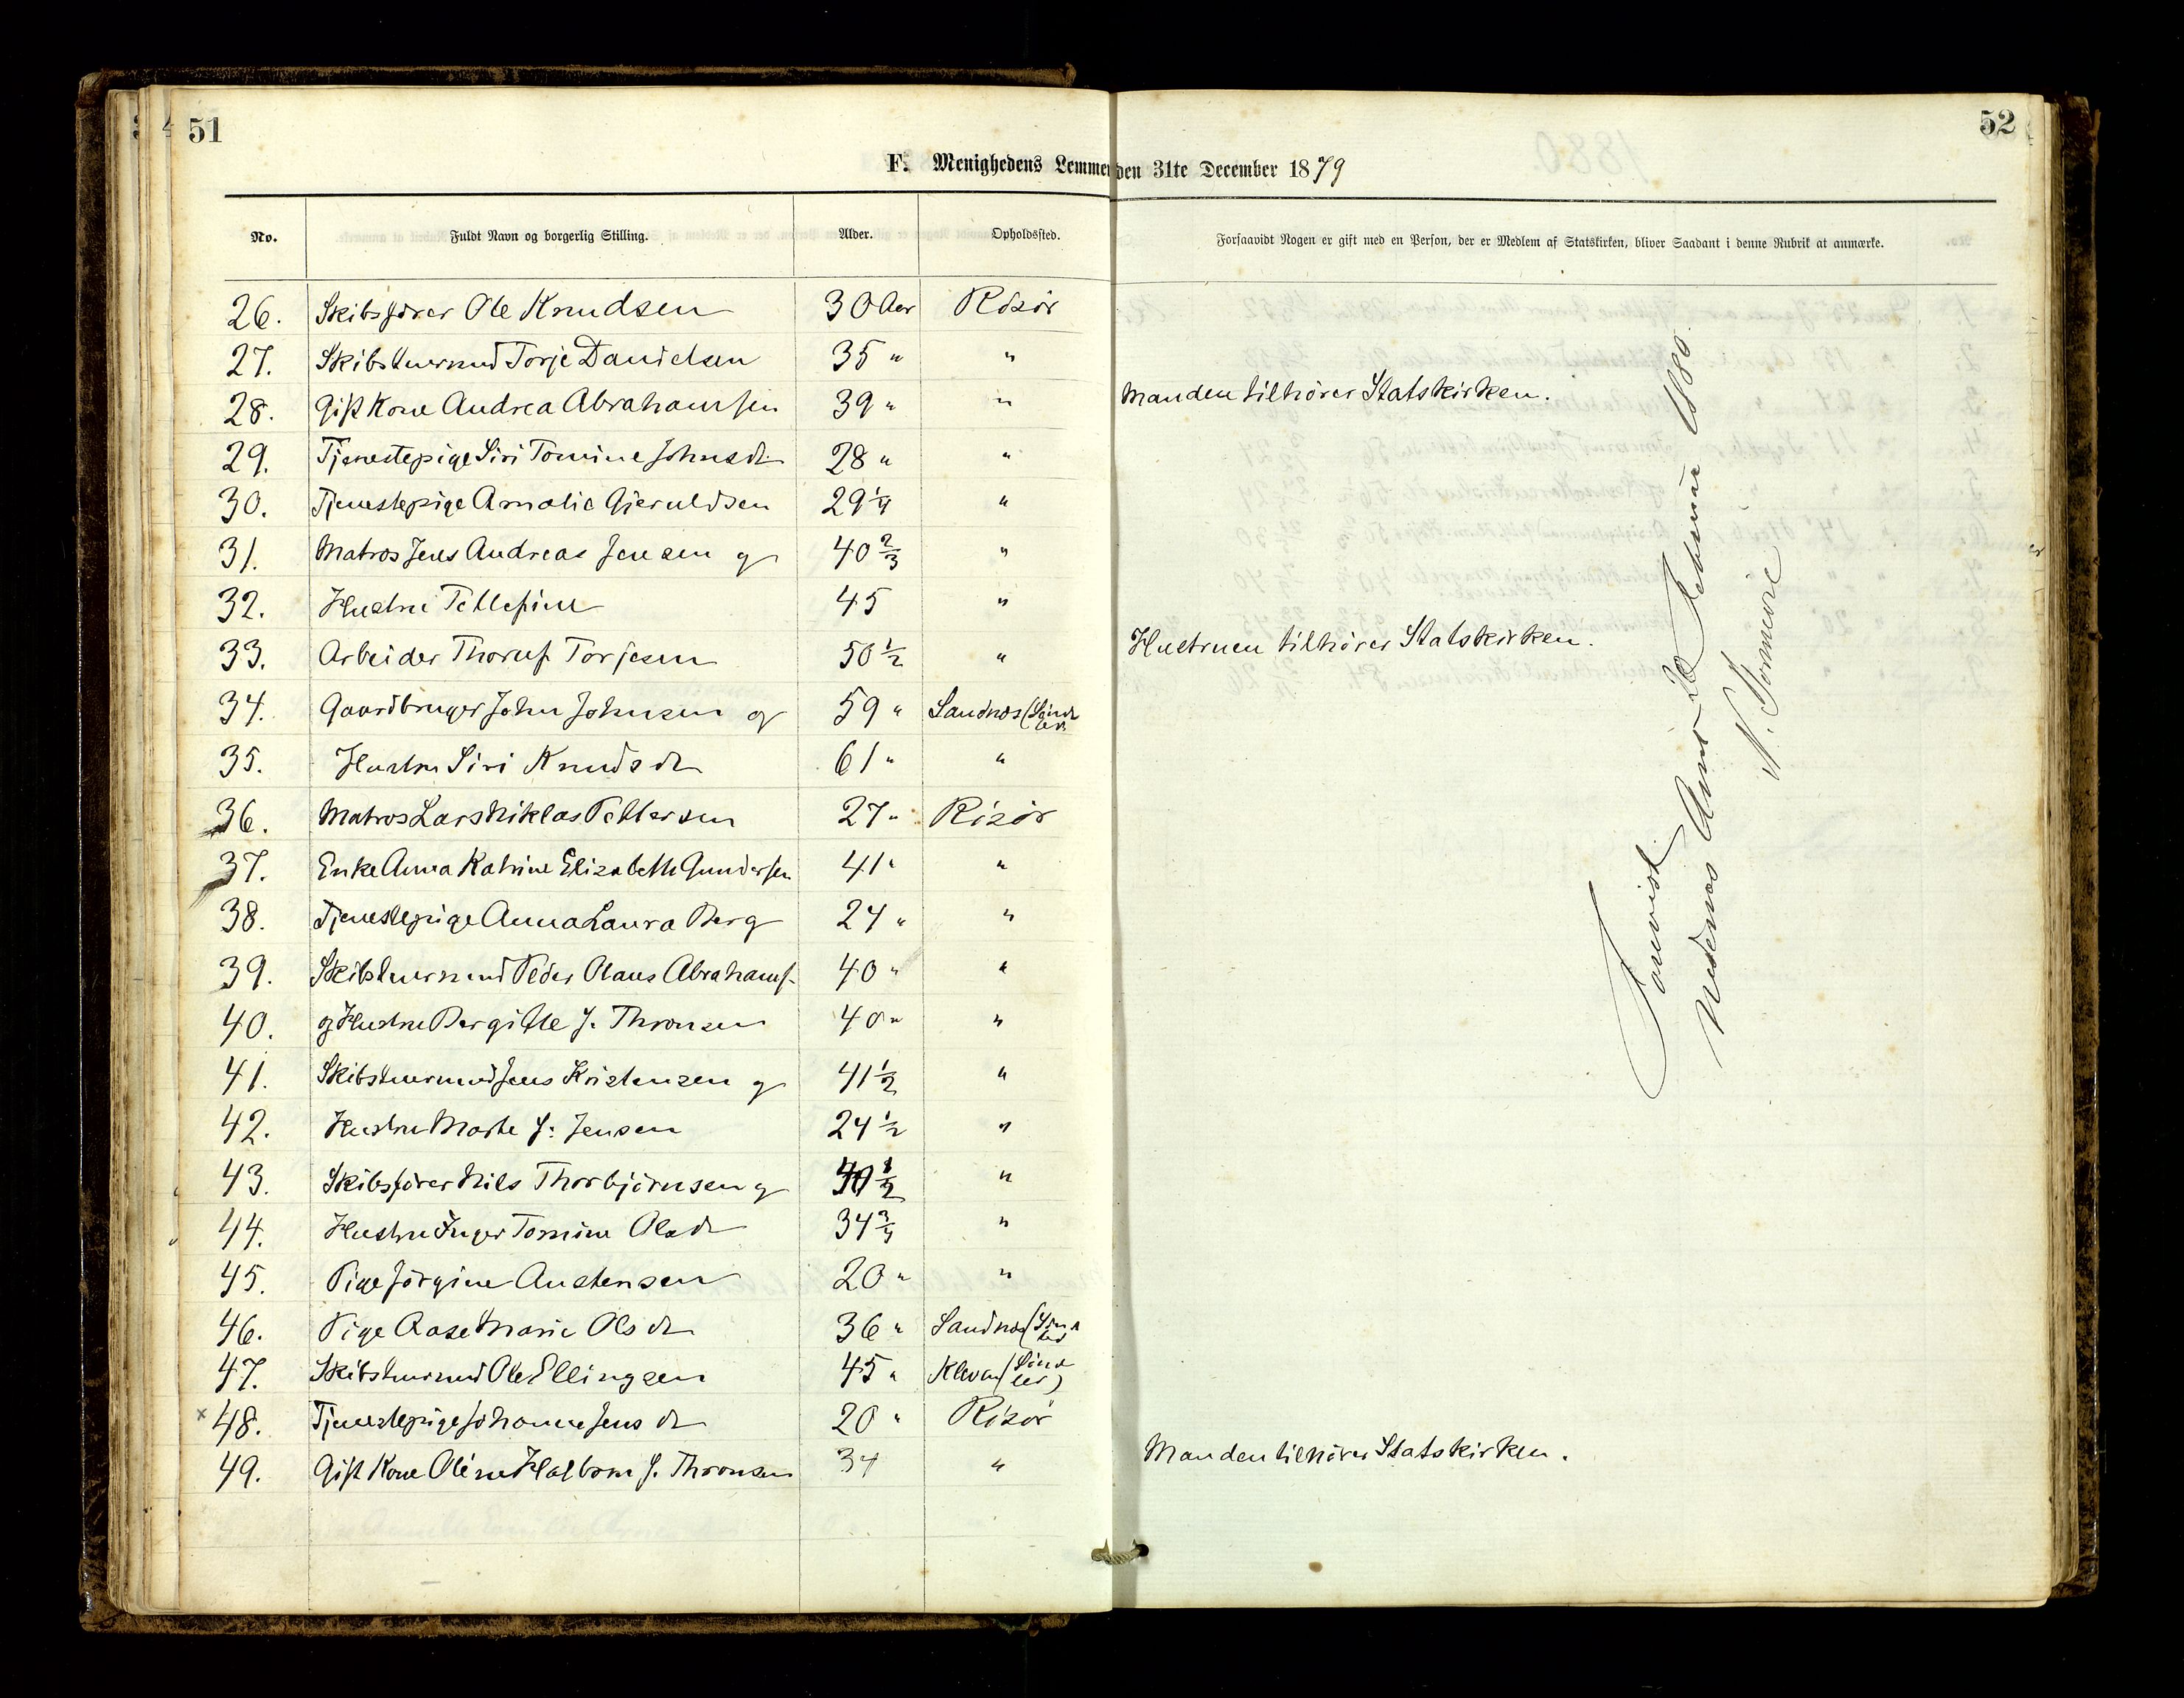 51
52
F. Menighedens Lemmer den 31te December 1879
No.
Fuldt Navn og borgerlig Stilling.
Alder.
Opholdssted.
Forsaavidt Nogen er gift med en Person, der er Medlem af Statskirken, bliver Saadant i denne Rubrik at anmærke.
26. Skibsförer Ole Knudsen 30 Aar Risör
27. Skibstuermand Torje Danielsen 35 " "
28. Gift Kone Andrea Abrahamsen 39 " " Manden tilhörer Statskirken.
29. Tjenestepige Siri Tomine Johnsdr 28 " "
30. Tjenestepige Amalie Gjeruldsen 29 1/4 "
31. Matros Jens Andreas Jensen og 40 2/3 "
32. Hustru Tellefine 45 "
33. Arbeider Thoruf Torjesen 50 1/2 " Hustruen tilhörer Statskirken.
34. Gaardbruger John Johnsen og 59 " Sandnæs (Sönde led)
35. Hustru Siri Knudsdr 61 " "
36. Matros Lars Niklas Pettersen 27 " Risör
37. Enke Anna Katrine Elizabeth Gundersen 41 " "
38. Tjenestepige Anna Laura Berg 24 " "
39. Skibstuermand Peder Olaus Abrahams. 40 " "
40. og Hustru Bergitte f. Thronsen 40 " "
41. Skibstuermand Jens Kristensen og 41 1/2 "
42. Hustru Marte f: Jensen 24 1/2 "
43. Skibsförer Nils Thorbjörnsen og 40 1/2 "
44. Hustru Inger Tomine Olsdr 34 3/4 "
45. Pige Jörgine Austensen 20 " "
46. Pige Aase Marie Olsdr 36 " Sandnæs (Sönde led
47. Skibstuermand Ole Ellingsen 45 " Klevan (Sönde led)
x 48. Tjenestepige Johanne Jensdr 20 " Risör
49. Gift Kone Oline Halborn f. Thronsen 34 " Manden tilhörer Statskirken.
Forevist
Nedenæs Amt 20 Februar 1880